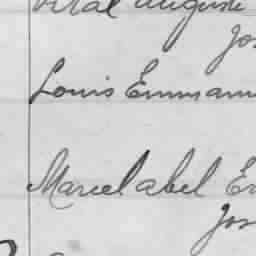 Vital Auguste
Jos
Louis Emmanu
Marcel abel Er
Jos